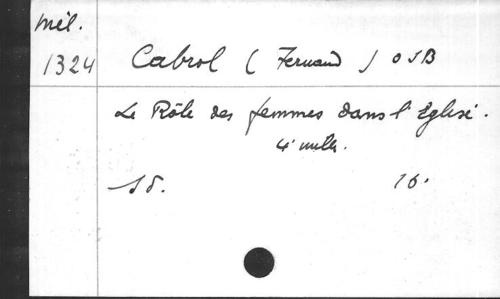 Mél.
1324 Cabrol ( Fernand ) OSB
Le Rôle des femmes dans l'Eglise.
4e mille.
S d. 16.